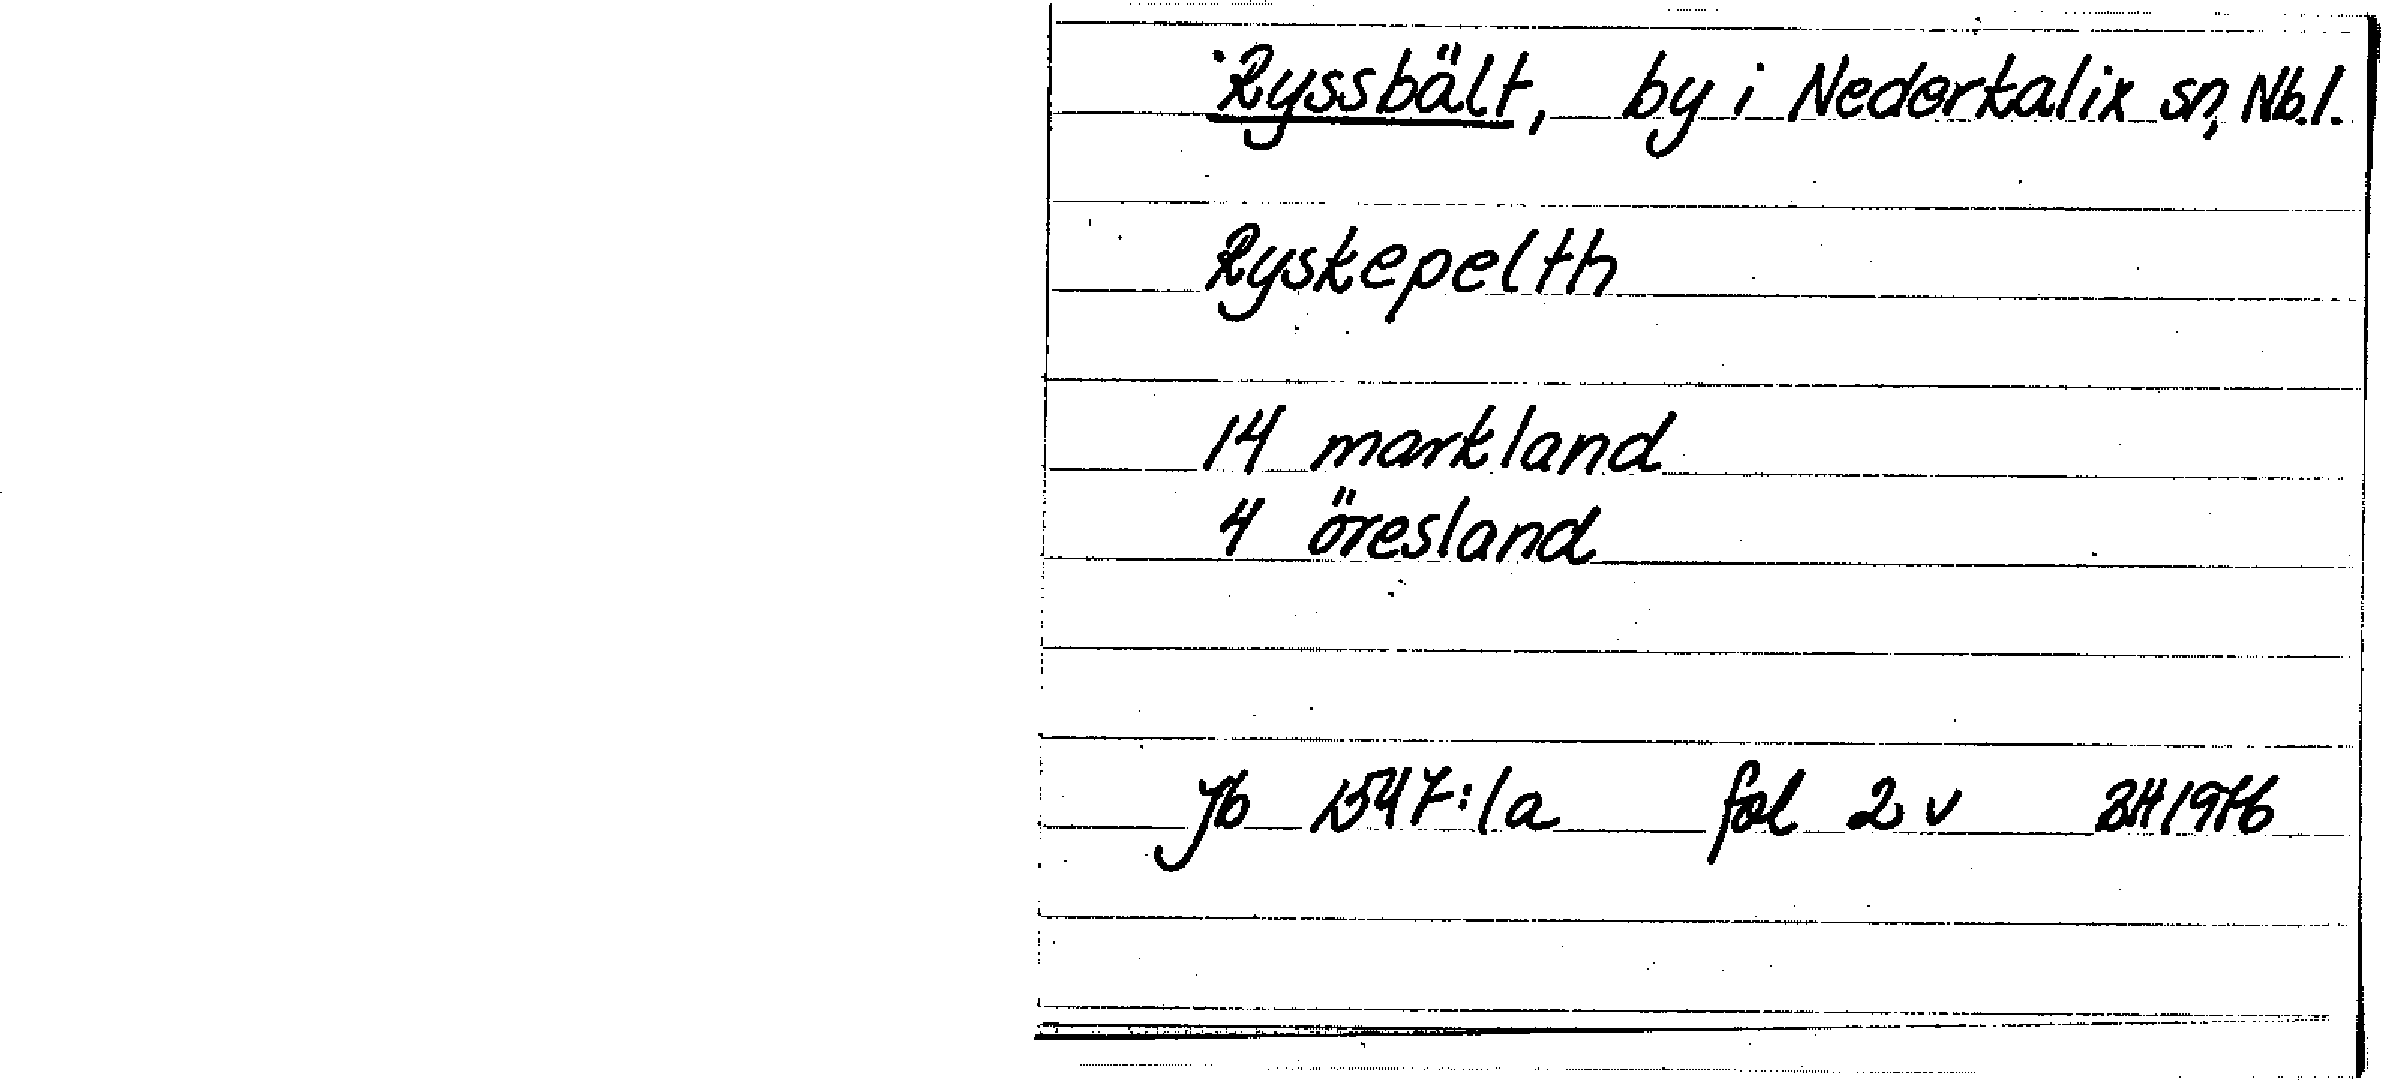 Ryssbält, by i Nederkalix sn, Nb.l.
Ryskepelth
14 markland
4 öresland
Jb 1547:1a fol 2 v BH 1976